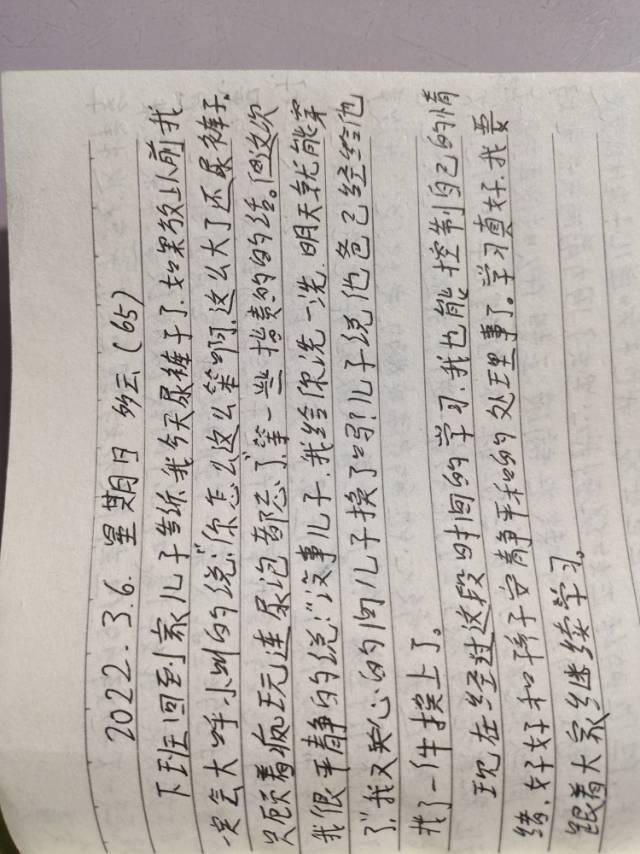 2022.3.6. 星期日 多云 (65)
下班回到家儿子告诉我今天尿裤子了.如果放以前我
一定会大呼小叫的说:"你怎么这么笨啊,这么大了还尿裤子.
只顾着疯玩连尿泡都忘了"等一些指责的的话。但这次
我很平静的说:"没事儿子.我给你洗一洗.明天就能穿
了."我又关心的问儿子换了吗?儿子说他爸已经给他
找了一件换上了。
现在经过这段时间的学习.我也能控制自己的情
绪.好好和孩子安静平和的处理事了。学习真好.我要
跟着大家继续学习。